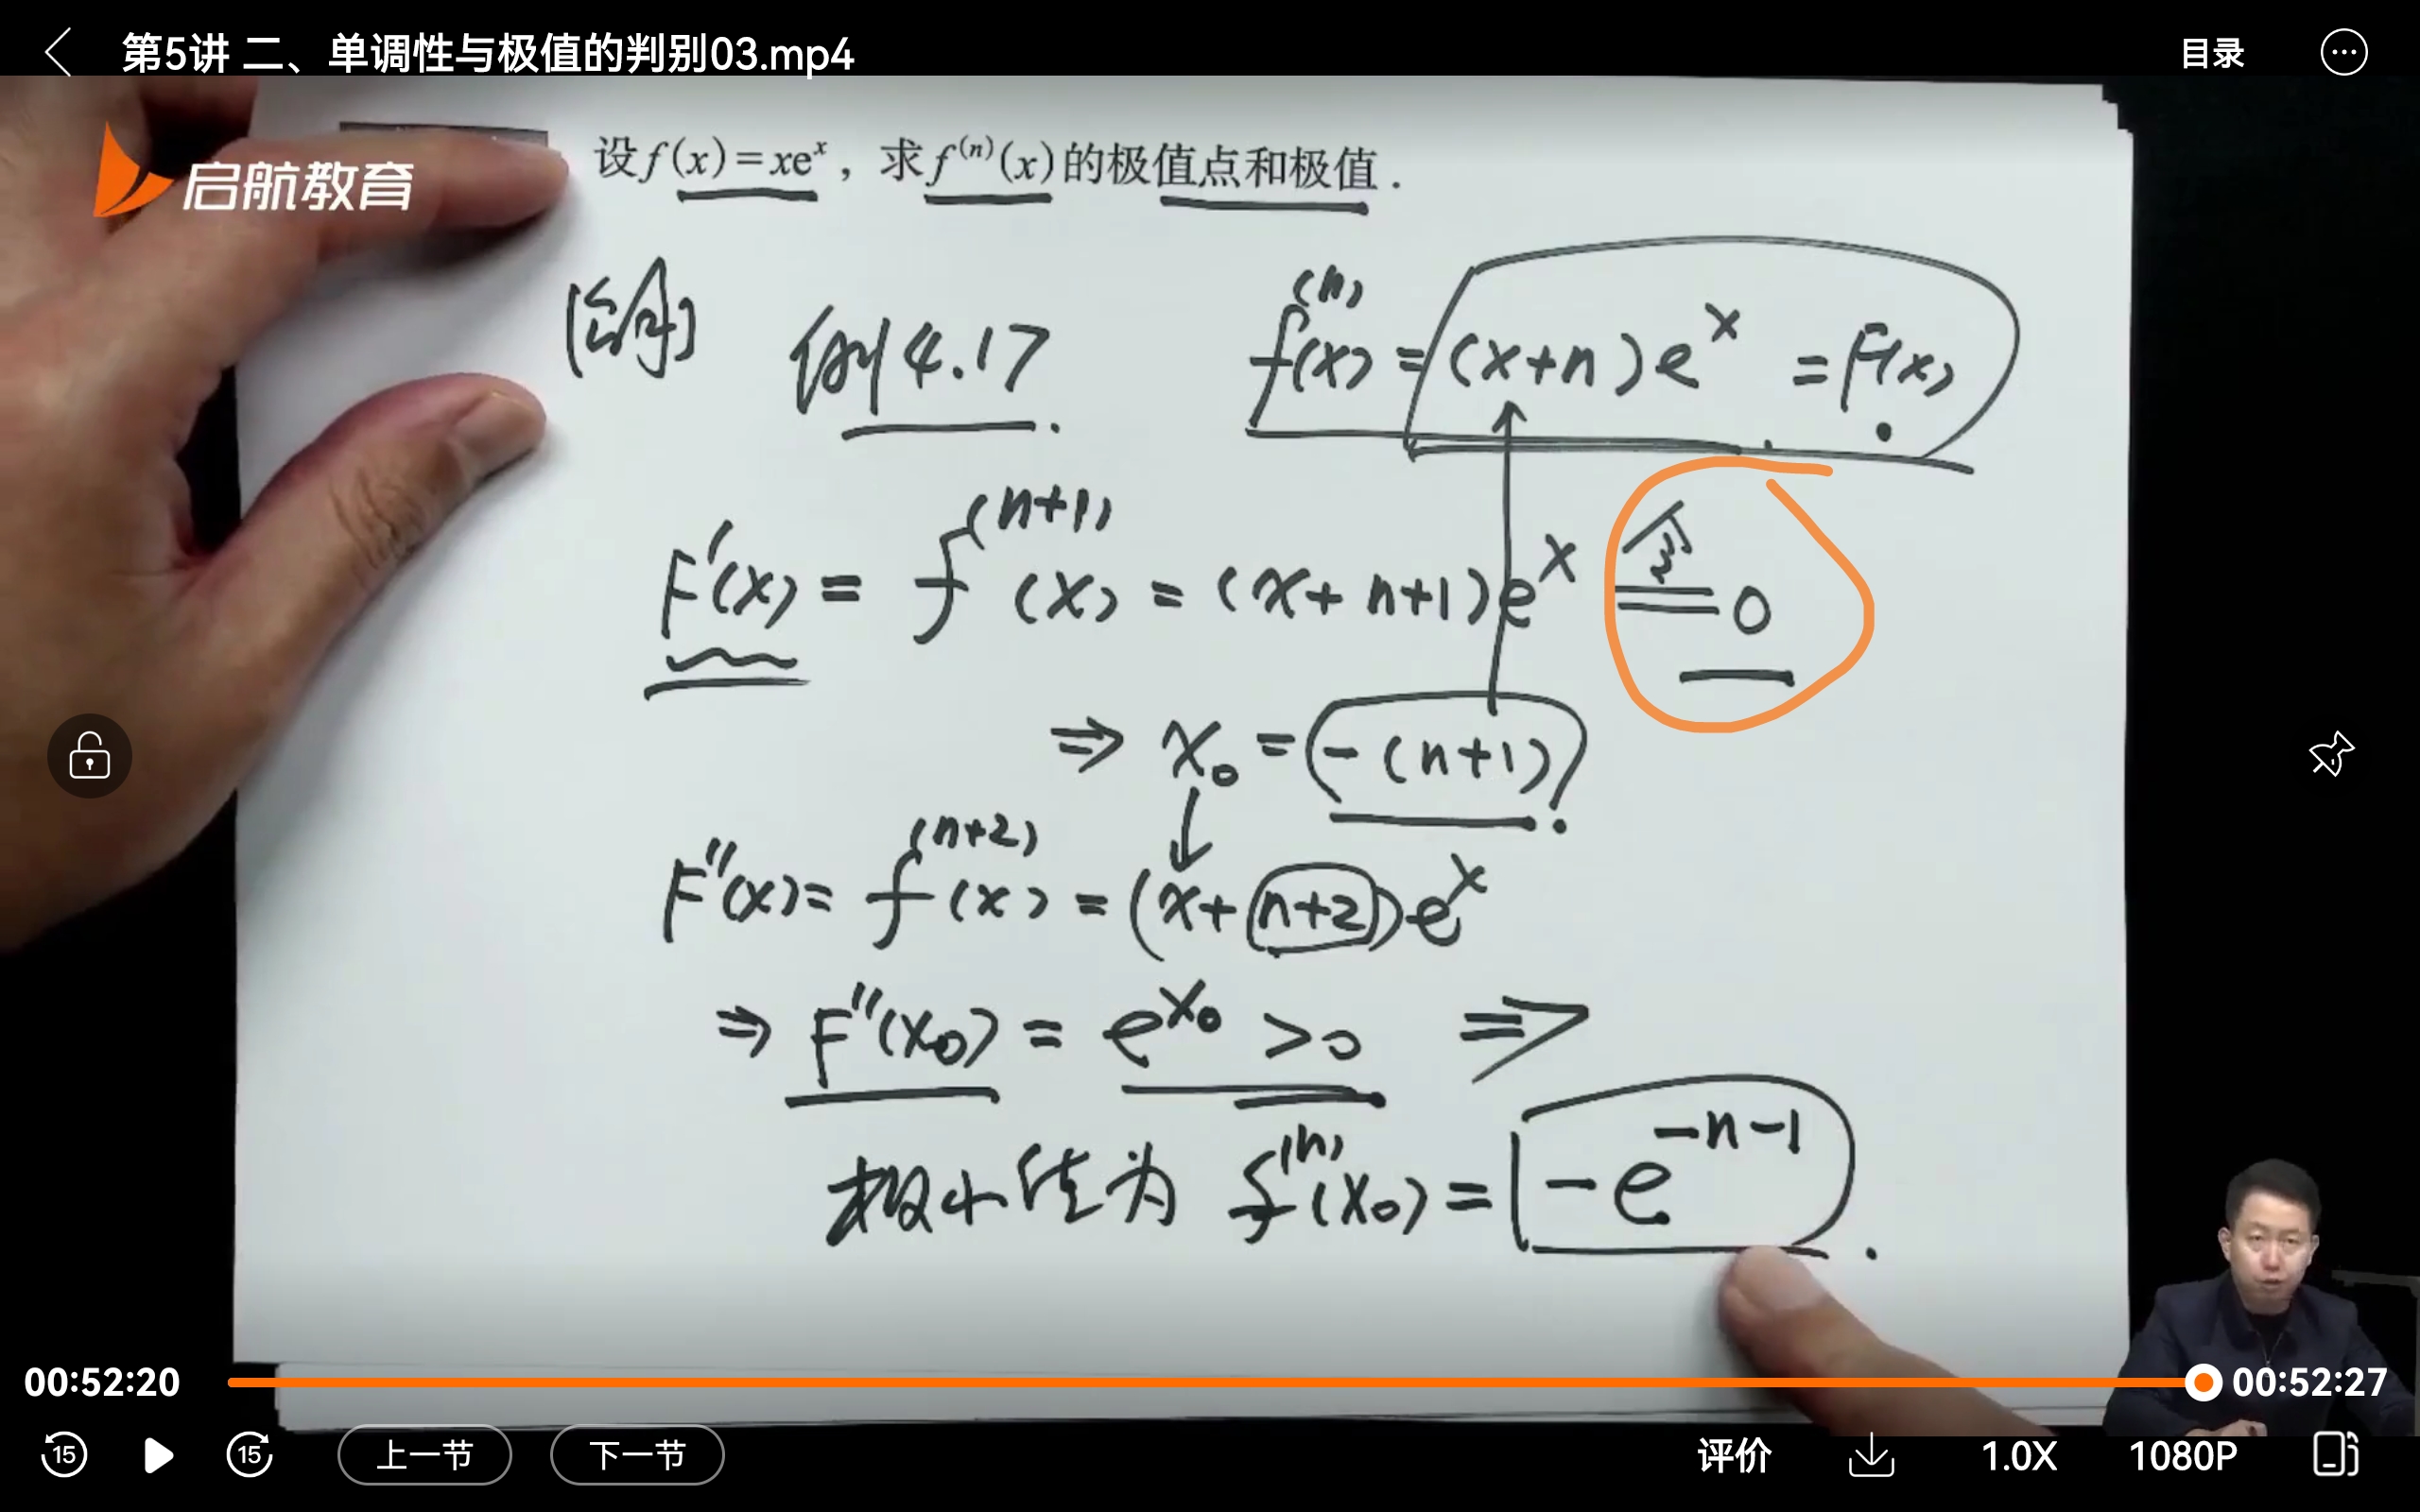 第5讲 二、单调性与极值的判别03.mp4
目录
启航教育
设f(x)=xeˣ，求f⁽ⁿ⁾(x)的极值点和极值.
[解] 例4.17. f⁽ⁿ⁾(x) = (x+n)eˣ = F(x)
F'(x) = f⁽ⁿ⁺¹⁾(x) = (x+n+1)eˣ 令== 0
⇒ x₀ = -(n+1).
F''(x) = f⁽ⁿ⁺²⁾(x) = (x+n+2)eˣ
⇒ F''(x₀) = e^x₀ >0 ⇒
极小值为 f⁽ⁿ⁾(x₀) = -e⁻ⁿ⁻¹.
00:52:20
00:52:27
15
15
上一节
下一节
评价
1.0X
1080P